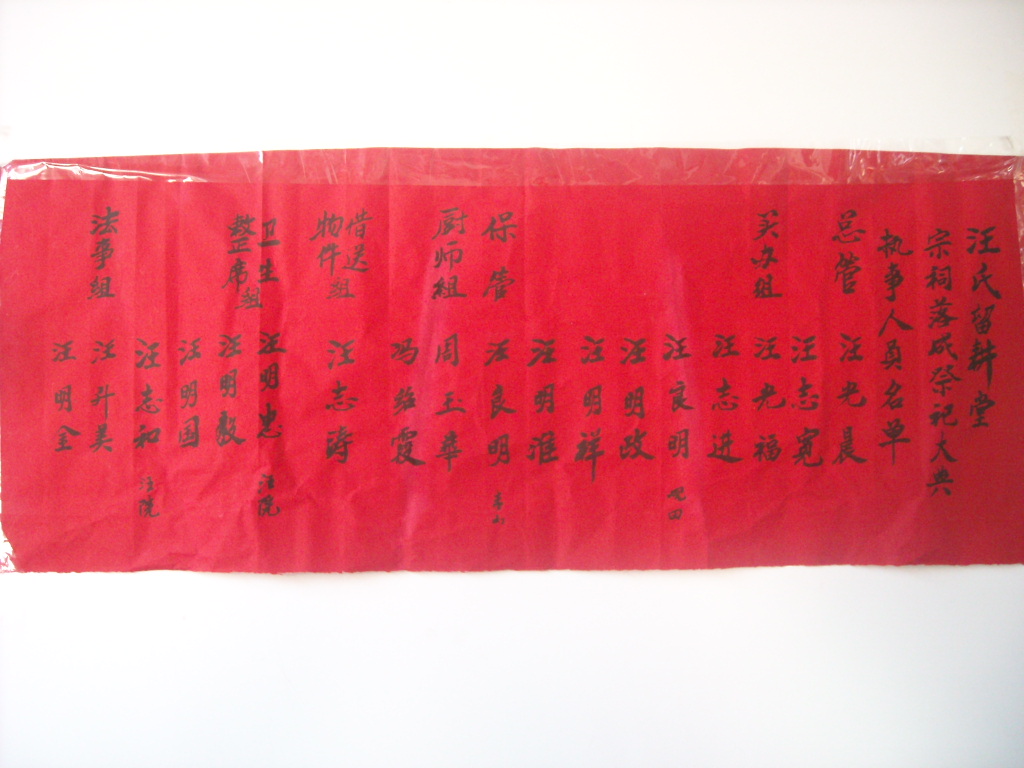 汪氏留耕堂
宗祠落成祭祀大典
执事人员名单
总管 汪光晨
汪志宽
买办组 汪光福
汪志进
汪良明
汪明政
汪明祥
汪明淮
保管 汪良明
厨师組 周玉華
冯
借送
物件組 汪志涛
卫生 汪明忠 汪院
整席組 汪明毅
汪明国
汪志和 汪院
法事組 汪升美
汪明全